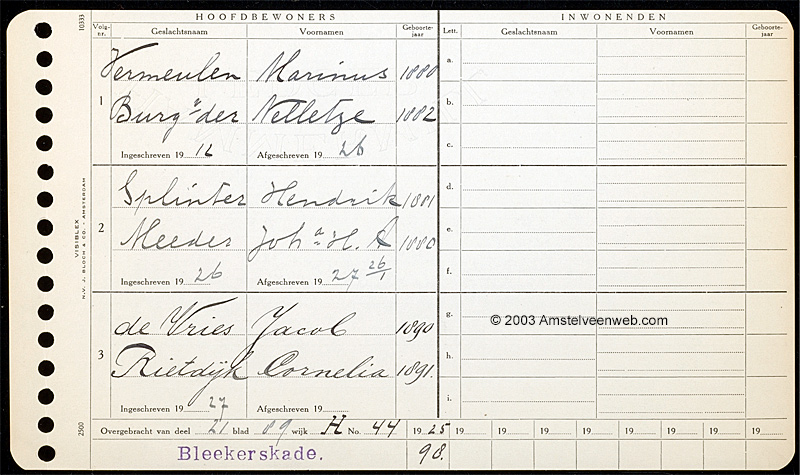 10333
HOOFDBEWONERS INWONENDEN
Volg-nr. Geslachtsnaam Voornamen Geboorte-jaar Lett. Geslachtsnaam Voornamen Geboorte-jaar
Vermeulen Marinus 1880 a.
1 Burg v. der Nelletze 1882 b.
Ingeschreven 19 12 Afgeschreven 19 26 c.
Splinter Hendrik 1881 d.
2 Meeder Joh a H. 1880 e.
Ingeschreven 19 26 Afgeschreven 19 27 26/1 f.
de Vries Jacob 1890 g.
© 2003 Amstelveenweb.com
3 Rietdijk Cornelia 1891. h.
Ingeschreven 19 27 Afgeschreven 19 i.
Overgebracht van deel 21 blad 89 wijk H No. 44 1925 19 19 19 19 19 19 19 19
Bleekerskade. 98.
VISIBLEX
N.V. J. BLOCH & CO. - AMSTERDAM
2500